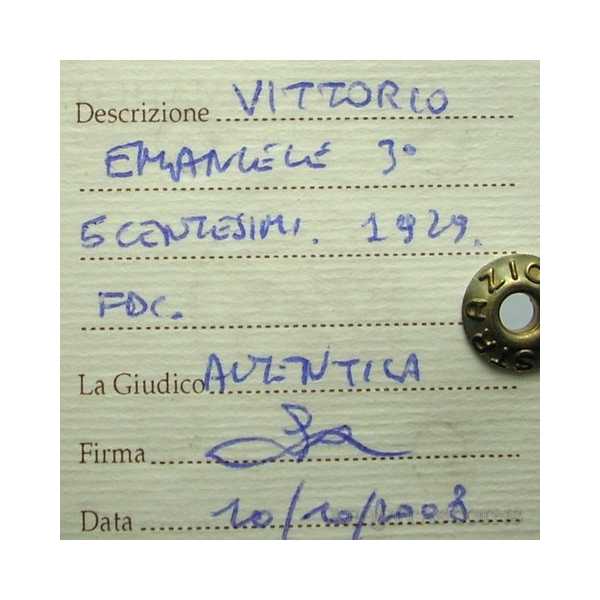 Descrizione VITTORIO
EMANUELE 3°
5 CENTESIMI. 1929.
FDC.
STRAZIO
La Giudico AUTENTICA
Firma
Data 10/10/2008